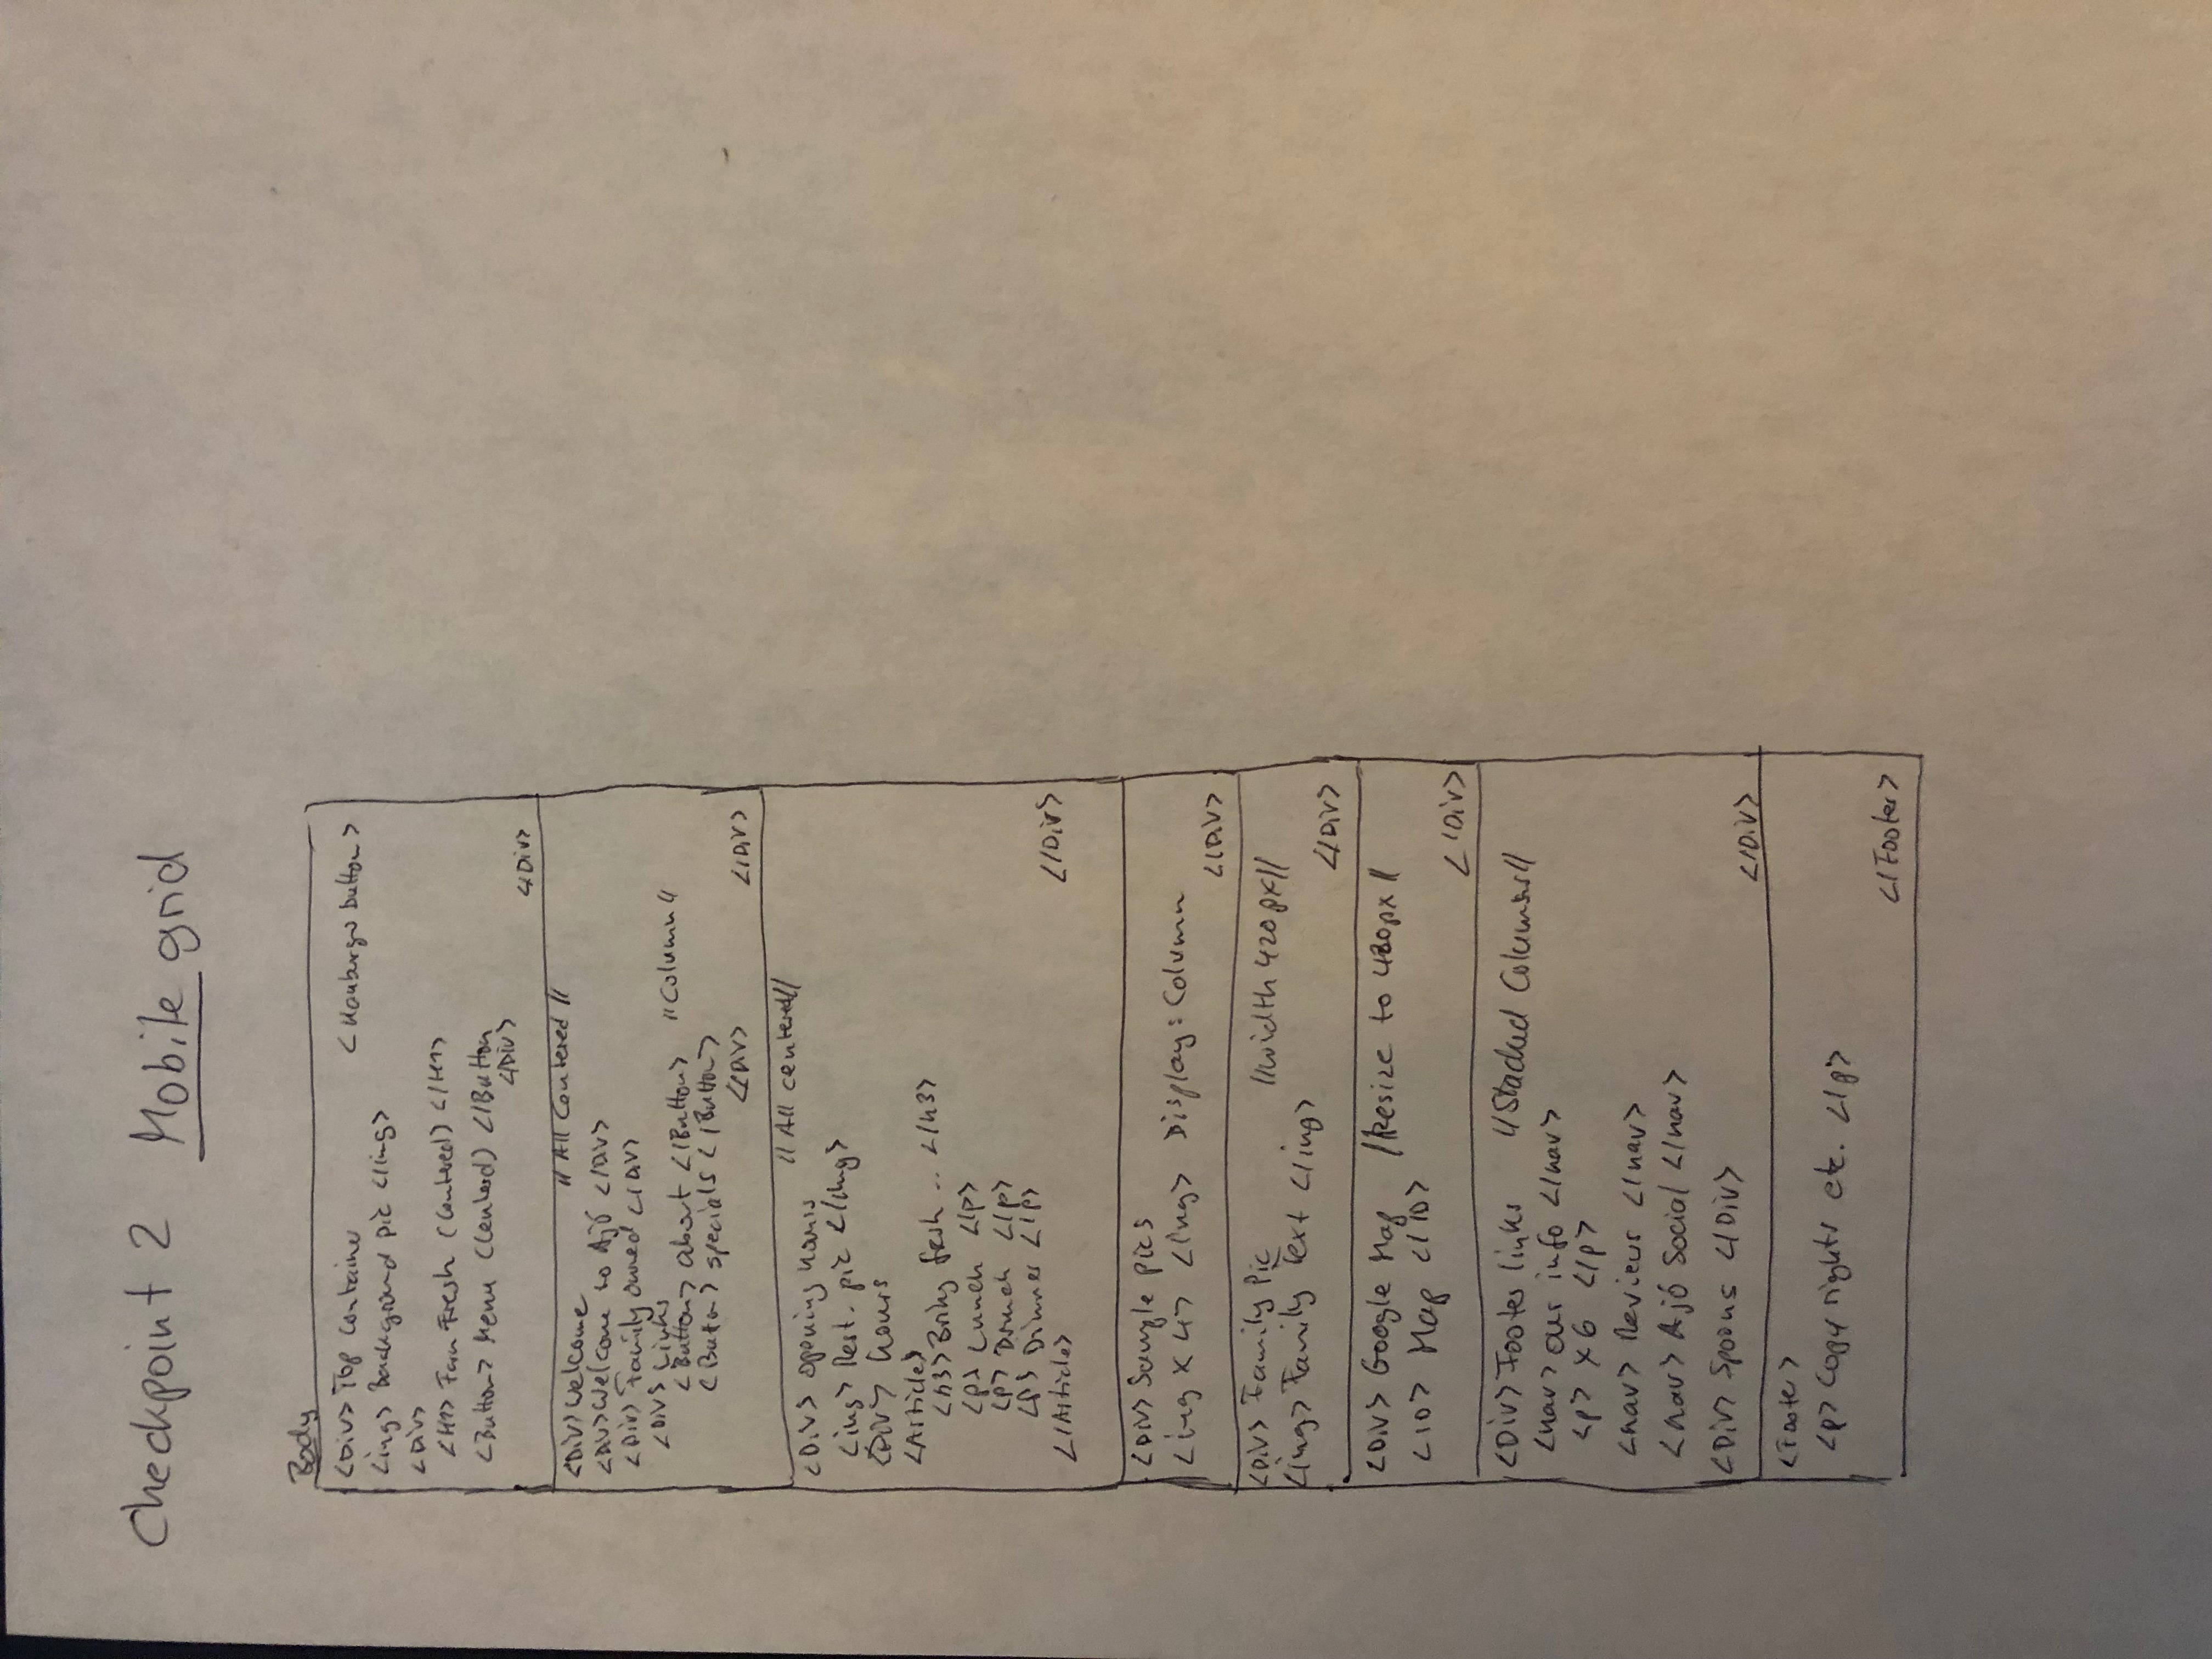 Checkpoint 2 Mobile grid
Body
<Div> Top Container <Hamburger button>
<img> Background pic </img>
<Div>
<H1> Farm Fresh (centered) </H1>
<Button> Menu (centerd) </Button
</Div>
</Div>
<Div> Welcome // All Centered //
<Div> Welcome to Ajó </Div>
<Div> Family owned </Div>
<Div> Links
<Button> about </Button> // Column //
<Button> specials </Button>
</Div> </Div>
// All centered //
<Div> opening hours
<img> Rest. pic </img>
<Div> hours
<Article>
<h3> Bring fresh .. </h3>
<p> Lunch </p>
<p> Brunch </p>
<p> Dinner </p>
</Article> </Div>
<Div> Sample pics
<img x 4> <img> Display: Column
</Div>
<Div> Family Pic // width 420px //
<img> Family Text </img>
</Div>
<Div> Google Map // Resize to 480px //
<ID> Map </ID>
</Div>
<Div> Footer links // Stacked Columns //
<nav> our info </nav>
<p> x6 </p>
<nav> Reviews </nav>
<nav> Ajó Social </nav>
<Div> Spoons </Div>
</Div>
<Footer>
<p> Copy rights etc. </p>
</Footer>